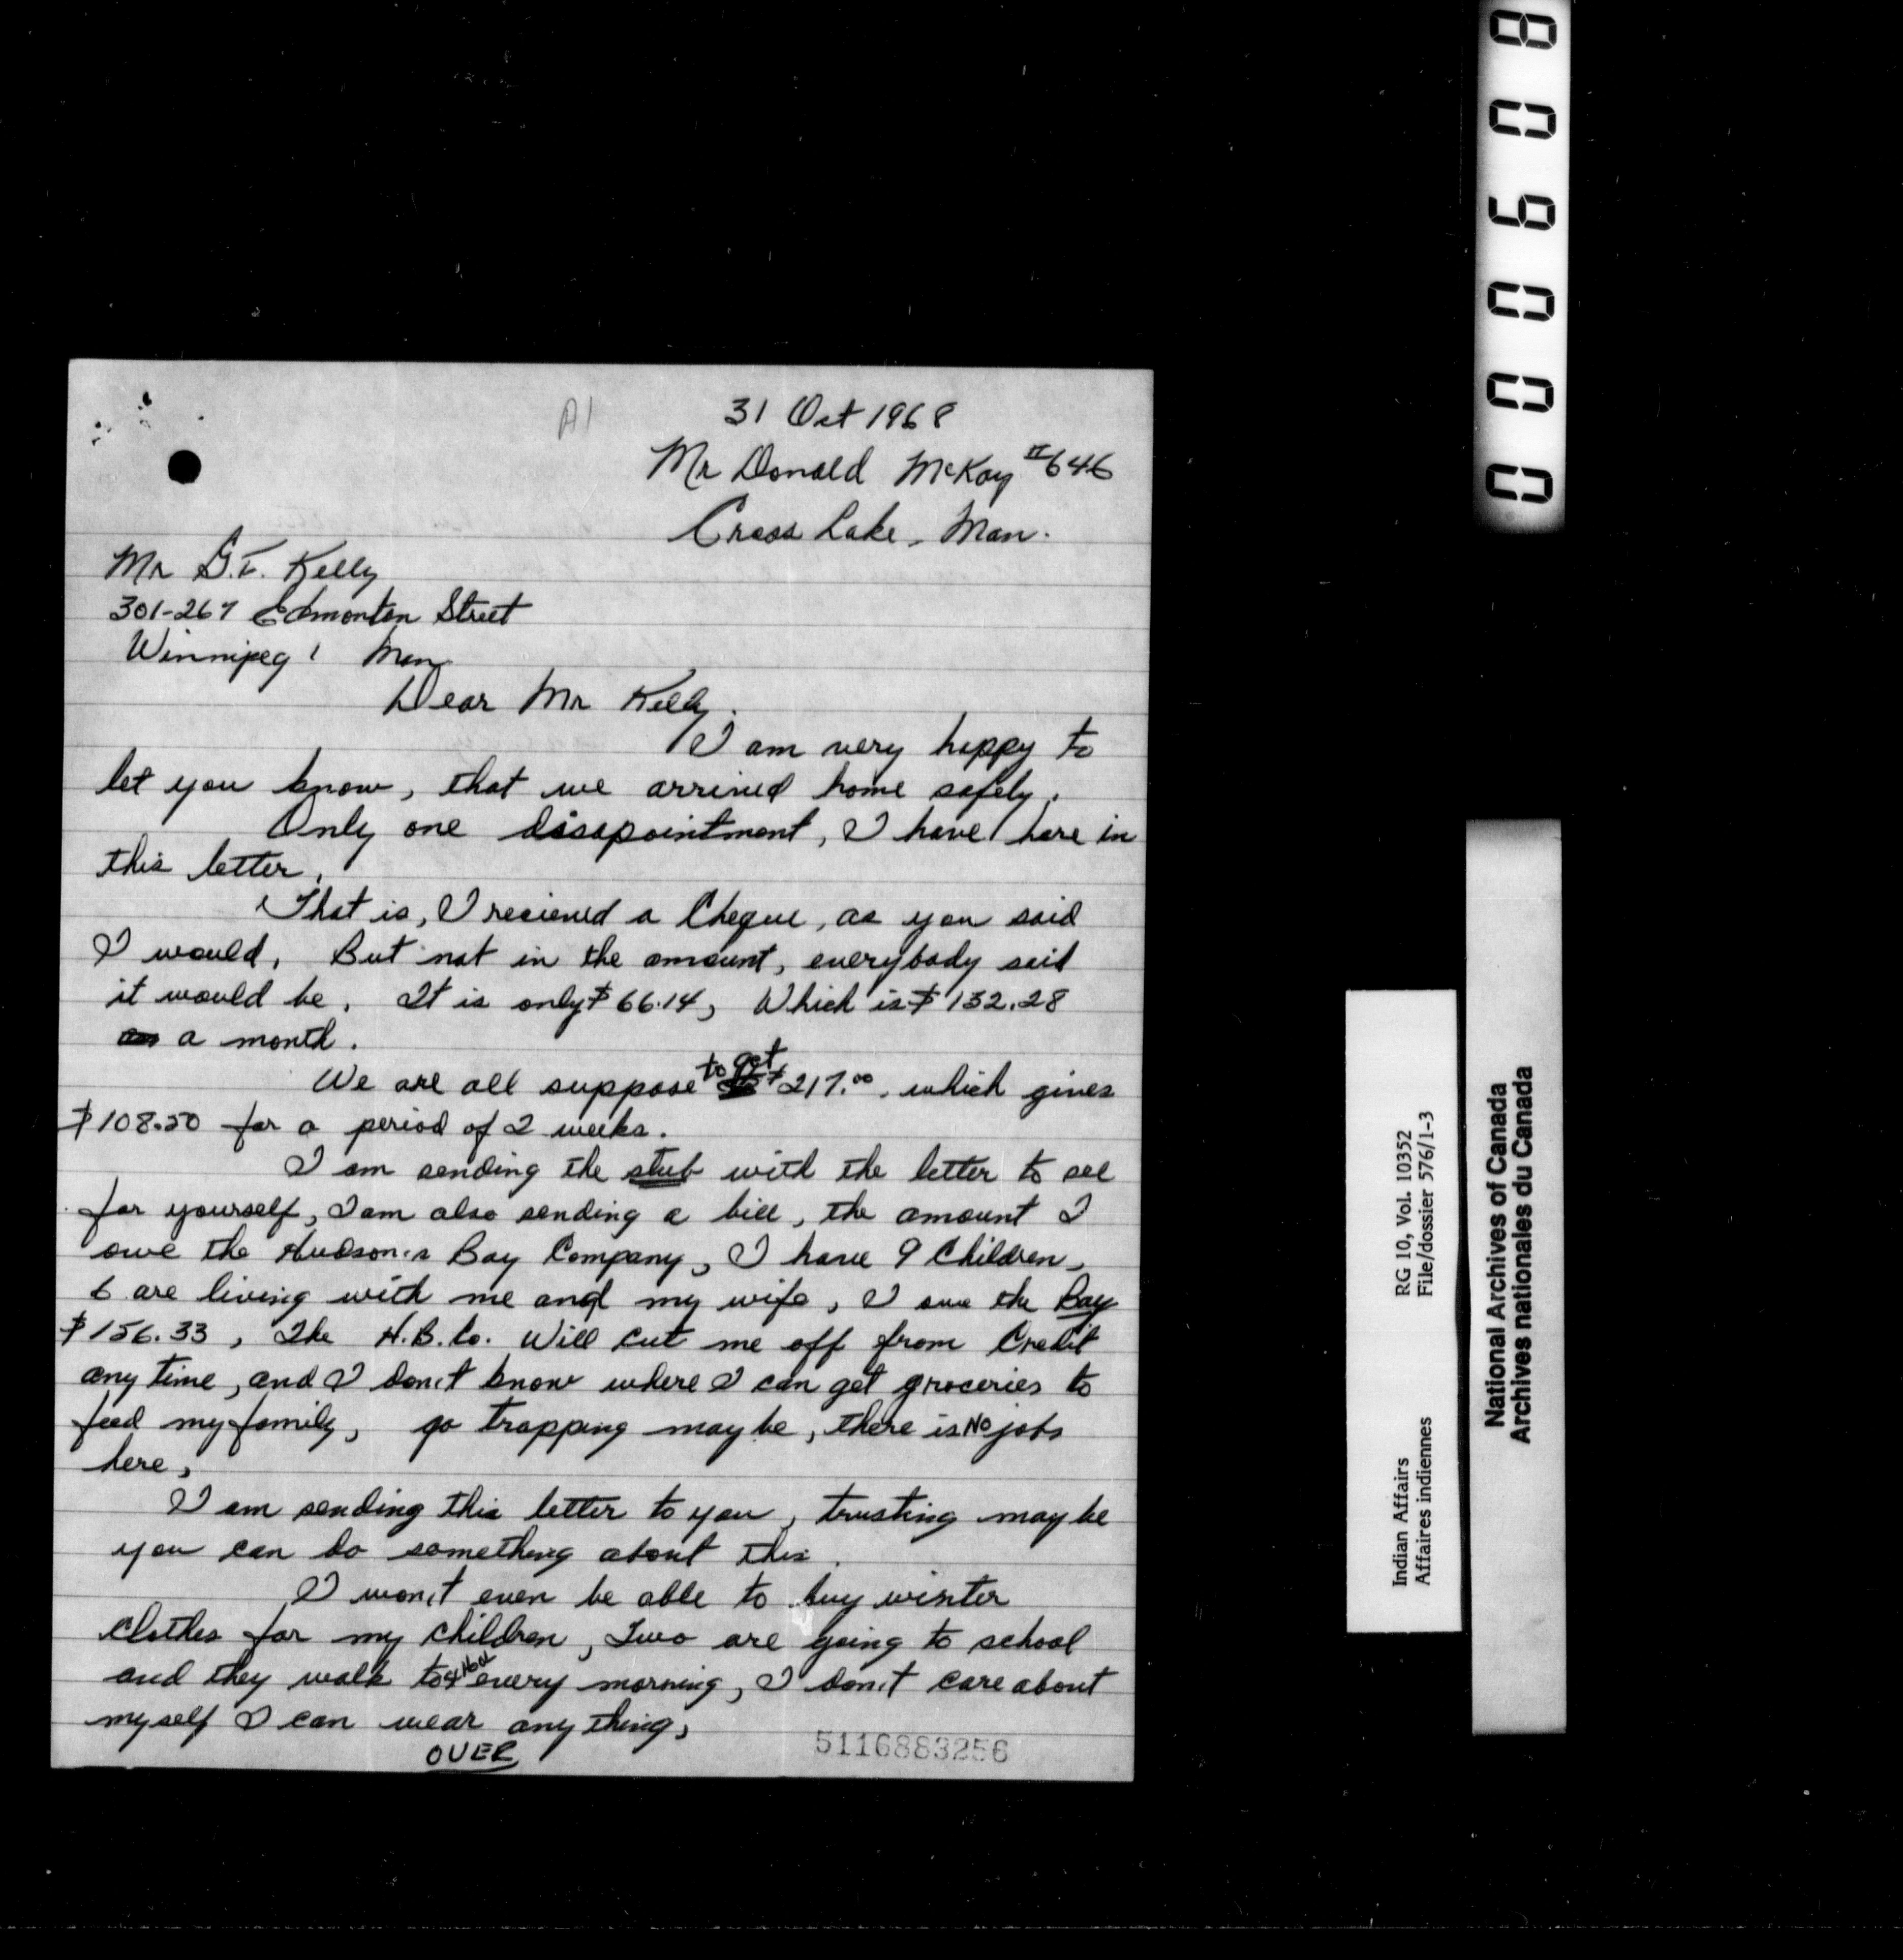 A1
31 Oct 1968
Mr Donald McKay #646
Cross Lake, Man.
Mr G.F. Kelly
301-267 Edmonton Street
Winnipeg 1 Man
Dear Mr Kelly.
I am very happy to
let you know, that we arrived home safely.
Only one disapointment, I have here in
this letter.
That is, I recieved a Cheque, as you said
I would, But not in the amount, everybody said
it would be. It is only $66.14, Which is $132.28
a month.
We are all suppose to get $217.00, which gives
$108.50 for a period of 2 weeks.
I am sending the stub with the letter to see
for yourself, I am also sending a bill, the amount I
owe the Hudson's Bay Company, I have 9 Children,
6 are living with me and my wife, I owe the Bay
$156.33, The H.B.Co. Will cut me off from Credit
any time, and I don't know where I can get groceries to
feed my family, go trapping may be, there is No jobs
here,
I am sending this letter to you, trusting may be
you can do something about this.
I won't even be able to buy winter
clothes for my children, Two are going to school
and they walk to every morning, I don't care about
myself I can wear any thing,
OVER
5116883256
000608
RG 10, Vol. 10352
File/dossier 576/1-3
Indian Affairs
Affaires indiennes
National Archives of Canada
Archives nationales du Canada